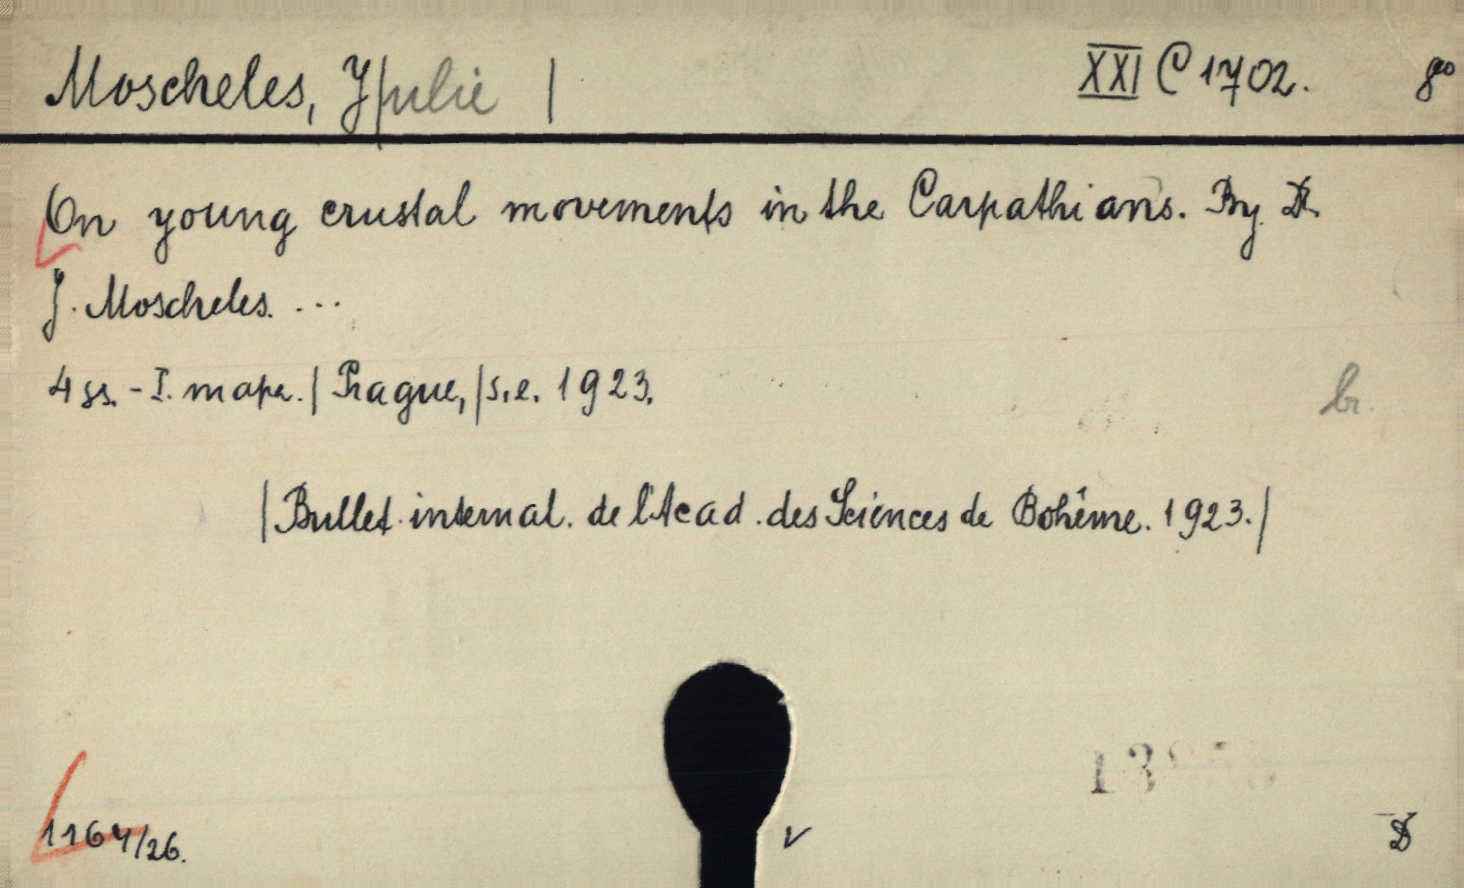 Moscheles, J|ulie | XXI C 1702. 8º
On young crustal movements in the Carpathians. By Dr.
J. Moscheles. ...
4 ss. - I. mapa. | Prague, | s. e. 1923.
br.
| Bullet. internat. de l'Acad. des Sciences de Bohême. 1923. |
1164/26.